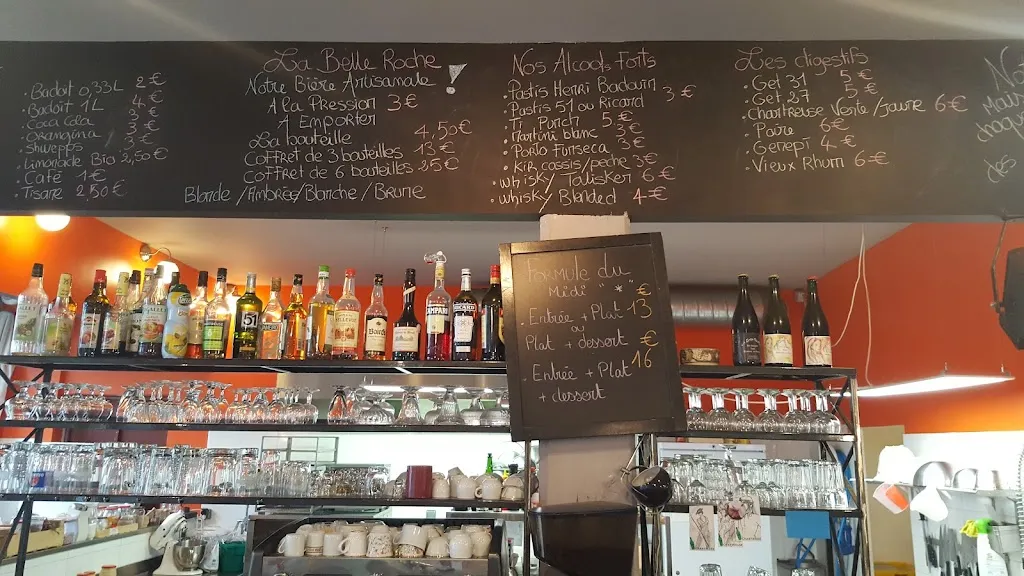 . Badoit 0,33L 2€
. Badoit 1L 4€
. Coca Cola 3€
. Orangina 3€
. Shwepps 3€
. Limonade Bio 2,50€
. Café 1€
. Tisane 2,50€
La Belle Roche
Notre Bière Artisanale !
A la Pression 3€
A Emporter
La bouteille 4,50€
Coffret de 3 bouteilles 13€
Coffret de 6 bouteilles 25€
Blonde / Ambrée / Blanche / Brune
Nos Alcools Forts
. Pastis Henri Badouin
. Pastis 51 ou Ricard 3€
. Ti Punch 5€
. Martini blanc 3€
. Porto Fonseca 3€
. Kir cassis/pêche 3€
. Whisky / Talisker 6€
. whisky / Blended 4€
Les digestifs
. Get 31 5€
. Get 27 5€
. Chartreuse Verte / Jaune 6€
. Poire 6€
. Genepi 4€
. Vieux Rhum 6€
chaque
des
Formule du
Midi " * "
. Entrée + Plat 13€
ou
Plat + dessert
. Entrée + Plat 16€
+ dessert
51
CAMPARI